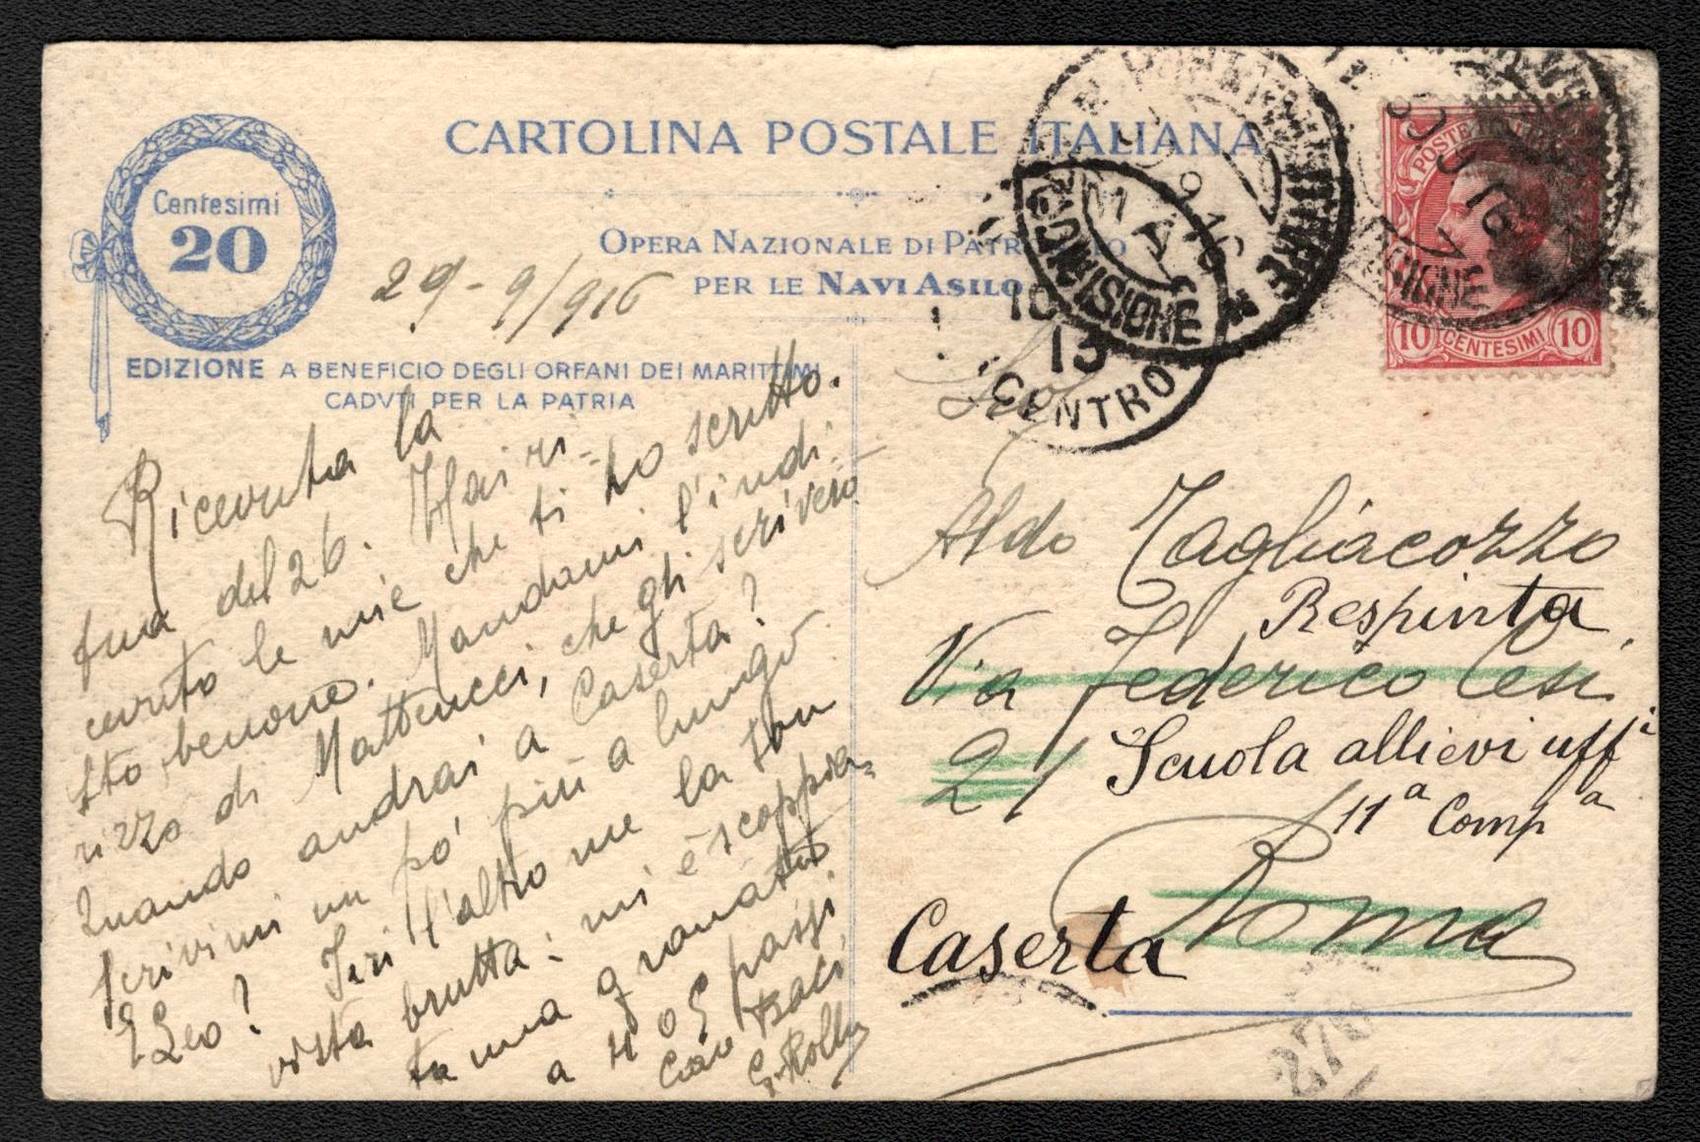 CARTOLINA POSTALE ITALIANA
Centesimi
20
OPERA NAZIONALE DI PATR
PER LE NAVI ASILO
EDIZIONE A BENEFICIO DEGLI ORFANI DEI MARITTIMI
CADVTI PER LA PATRIA
29-9/916
Ricevuta la
tua del 26. Hai ri-
cevuto le mie che ti ho scritto.
Sto benone. Mandami l'indi-
rizzo di Mattencci, che gli scriverò
Quando andrai a Caserta?
Scrivimi un pò più a lungo
E Leo? Ieri l'altro me la son
vista brutta: mi è scoppia=
ta una granata
a 4 o 5 passi
G. Rolly
POSTE
10 CENTESIMI 10
DIVISIONE
CENTRO
13
Aldo Tagliacozzo
Respinta
Via Federico Cesi
21 Scuola allievi uffi
11a Compa
Roma
Caserta
276